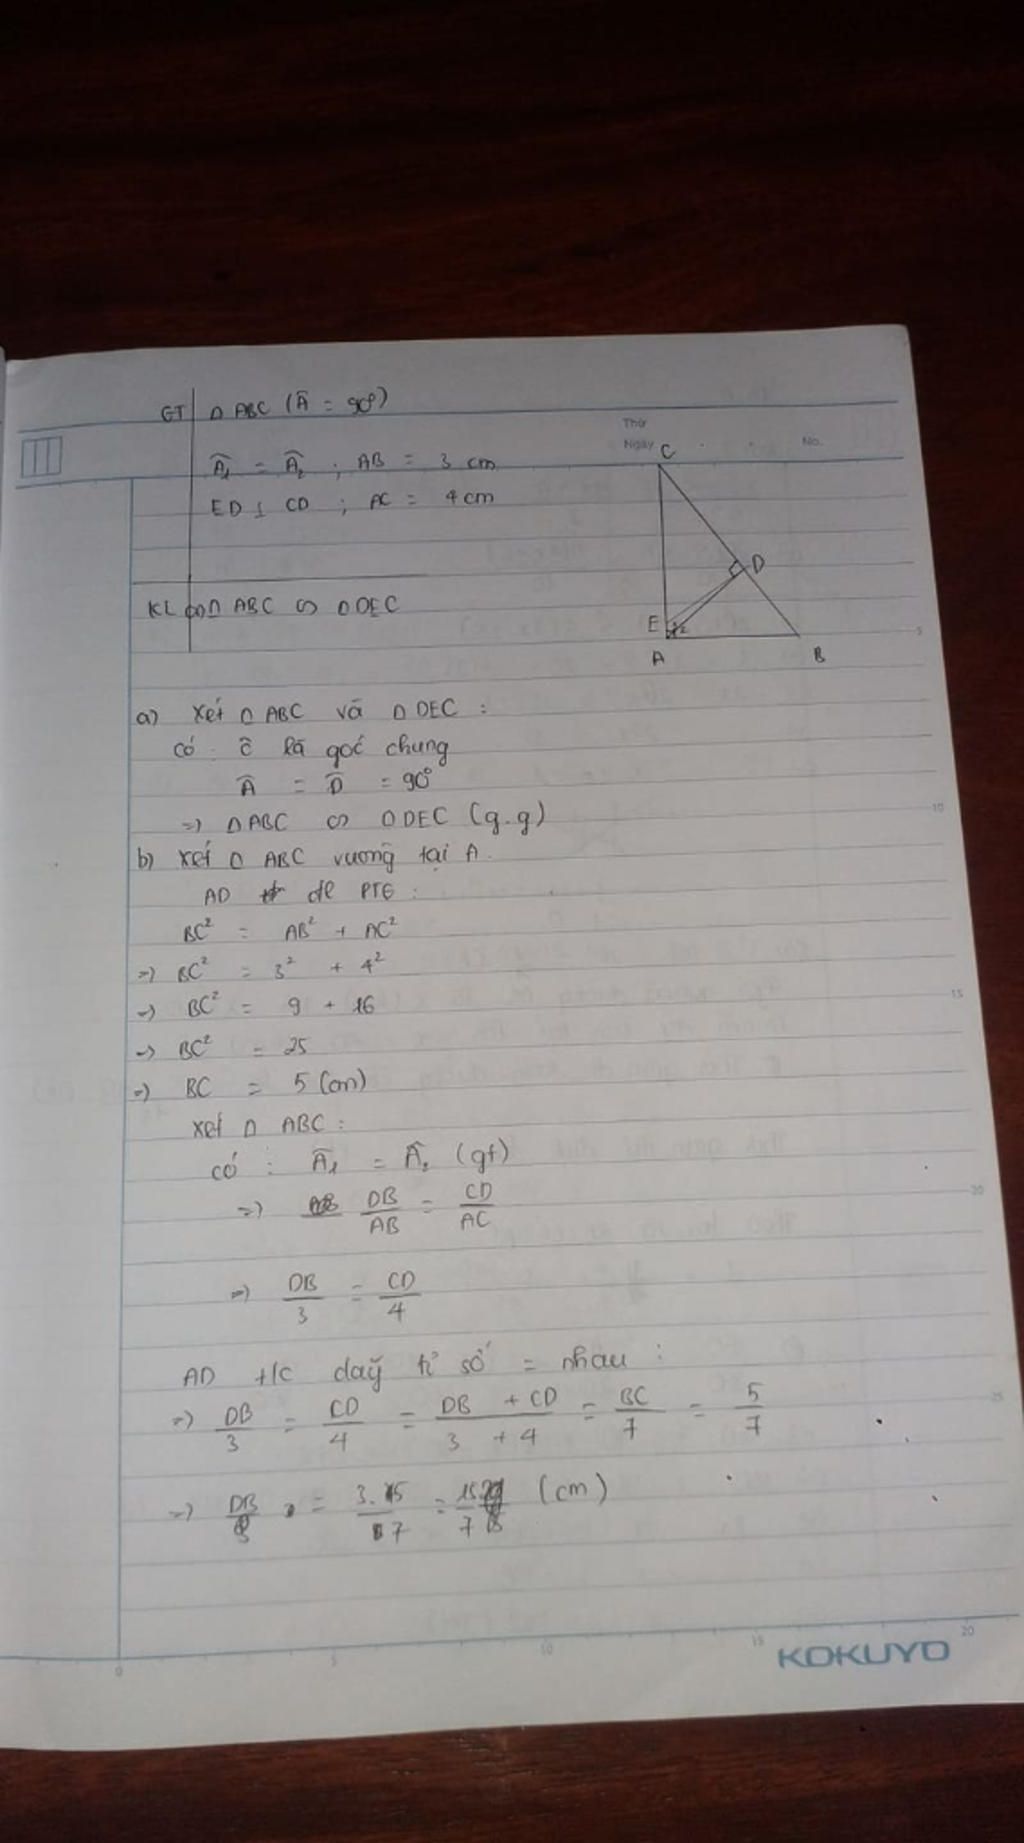 GT | Δ ABC (Â = 90°)
Thứ
Ngày
No.
Â₁ = Â₂ ; AB = 3 cm
ED ⊥ CD ; AC = 4 cm
KL Δ ABC ∽ Δ DEC
C
D
E
2
A
B
a) Xét Δ ABC và Δ DEC :
có : Ĉ là góc chung
Â = D̂ = 90°
=> Δ ABC ∽ Δ DEC (g.g)
b) xét Δ ABC vuông tại A.
AD đl PTG :
BC² = AB² + AC²
=> BC² = 3² + 4²
=> BC² = 9 + 16
=> BC² = 25
=> BC = 5 (cm)
xét Δ ABC :
có : Â₁ = Â₂ (gt)
=> DB/AB = CD/AC
=> DB/3 = CD/4
AD t/c dãy tỉ số = nhau :
=> DB/3 = CD/4 = DB + CD/3 + 4 = BC/7 = 5/7
=> DB = 3.5/7 = 15/7 (cm)
5
10
15
20
25
0
5
10
15
20
KOKUYO